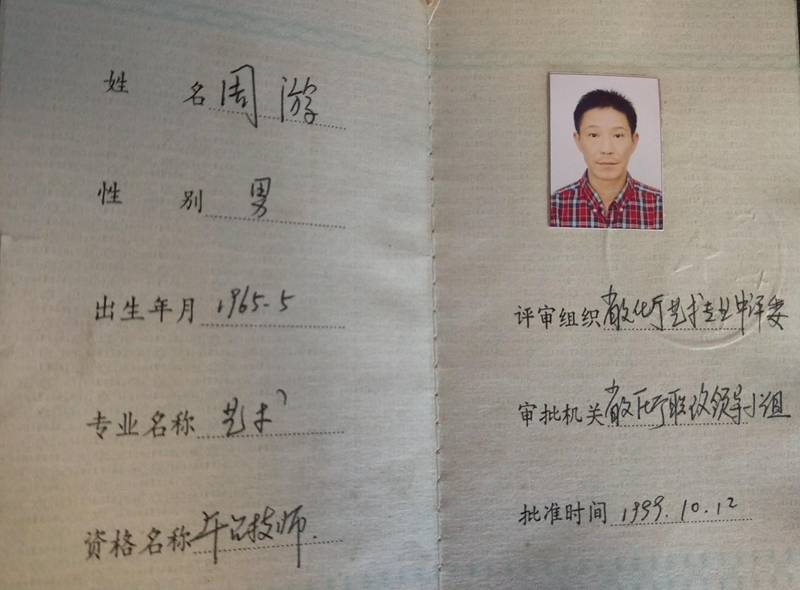 姓名 周游
性别 男
出生年月 1965.5
专业名称 艺术
资格名称 技师
评审组织 省文化厅艺术专业中评委
审批机关 省文化厅职改领导小组
批准时间 1999.10.12